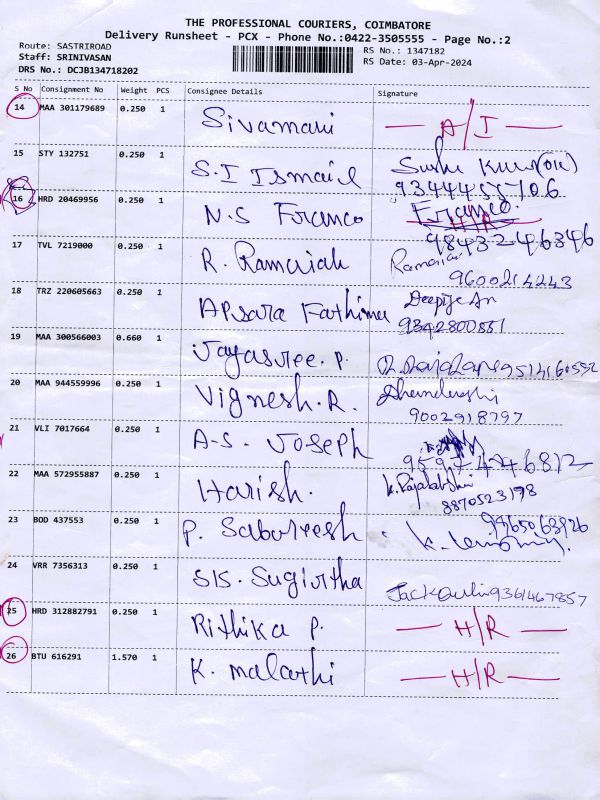 THE PROFESSIONAL COURIERS, COIMBATORE
Delivery Runsheet - PCX - Phone No.:0422-3505555 - Page No.:2
Route: SASTRIROAD
RS No.: 1347182
Staff: SRINIVASAN
RS Date: 03-Apr-2024
DRS No.: DCJB134718202
S No Consignment No Weight PCS Consignee Details Signature
14 MAA 301179689 0.250 1 Sivamani A/I
15 STY 132751 0.250 1 S.I Ismail
16 HRD 20469956 0.250 1 N.S Franco Franco H/R
98432 46346
17 TVL 7219000 0.250 1 R. Ramaiah Ramaiah
9600214243
18 TRZ 220605663 0.250 1 Apsara Fathima
9342800551
19 MAA 300566003 0.660 1 Jayasree. P.
20 MAA 944559996 0.250 1 Vignesh. R.
9002918797
21 VLI 7017664 0.250 1 A.S. Joseph
22 MAA 572955887 0.250 1 Harish. K. Rajalakshmi
8870523198
23 BOD 437553 0.250 1 P. Sabureesh
24 VRR 7356313 0.250 1 SIS. Sugirtha 9361467857
25 HRD 312882791 0.250 1 Rithika P. H/R
26 BTU 616291 1.570 1 K. Malathi H/R